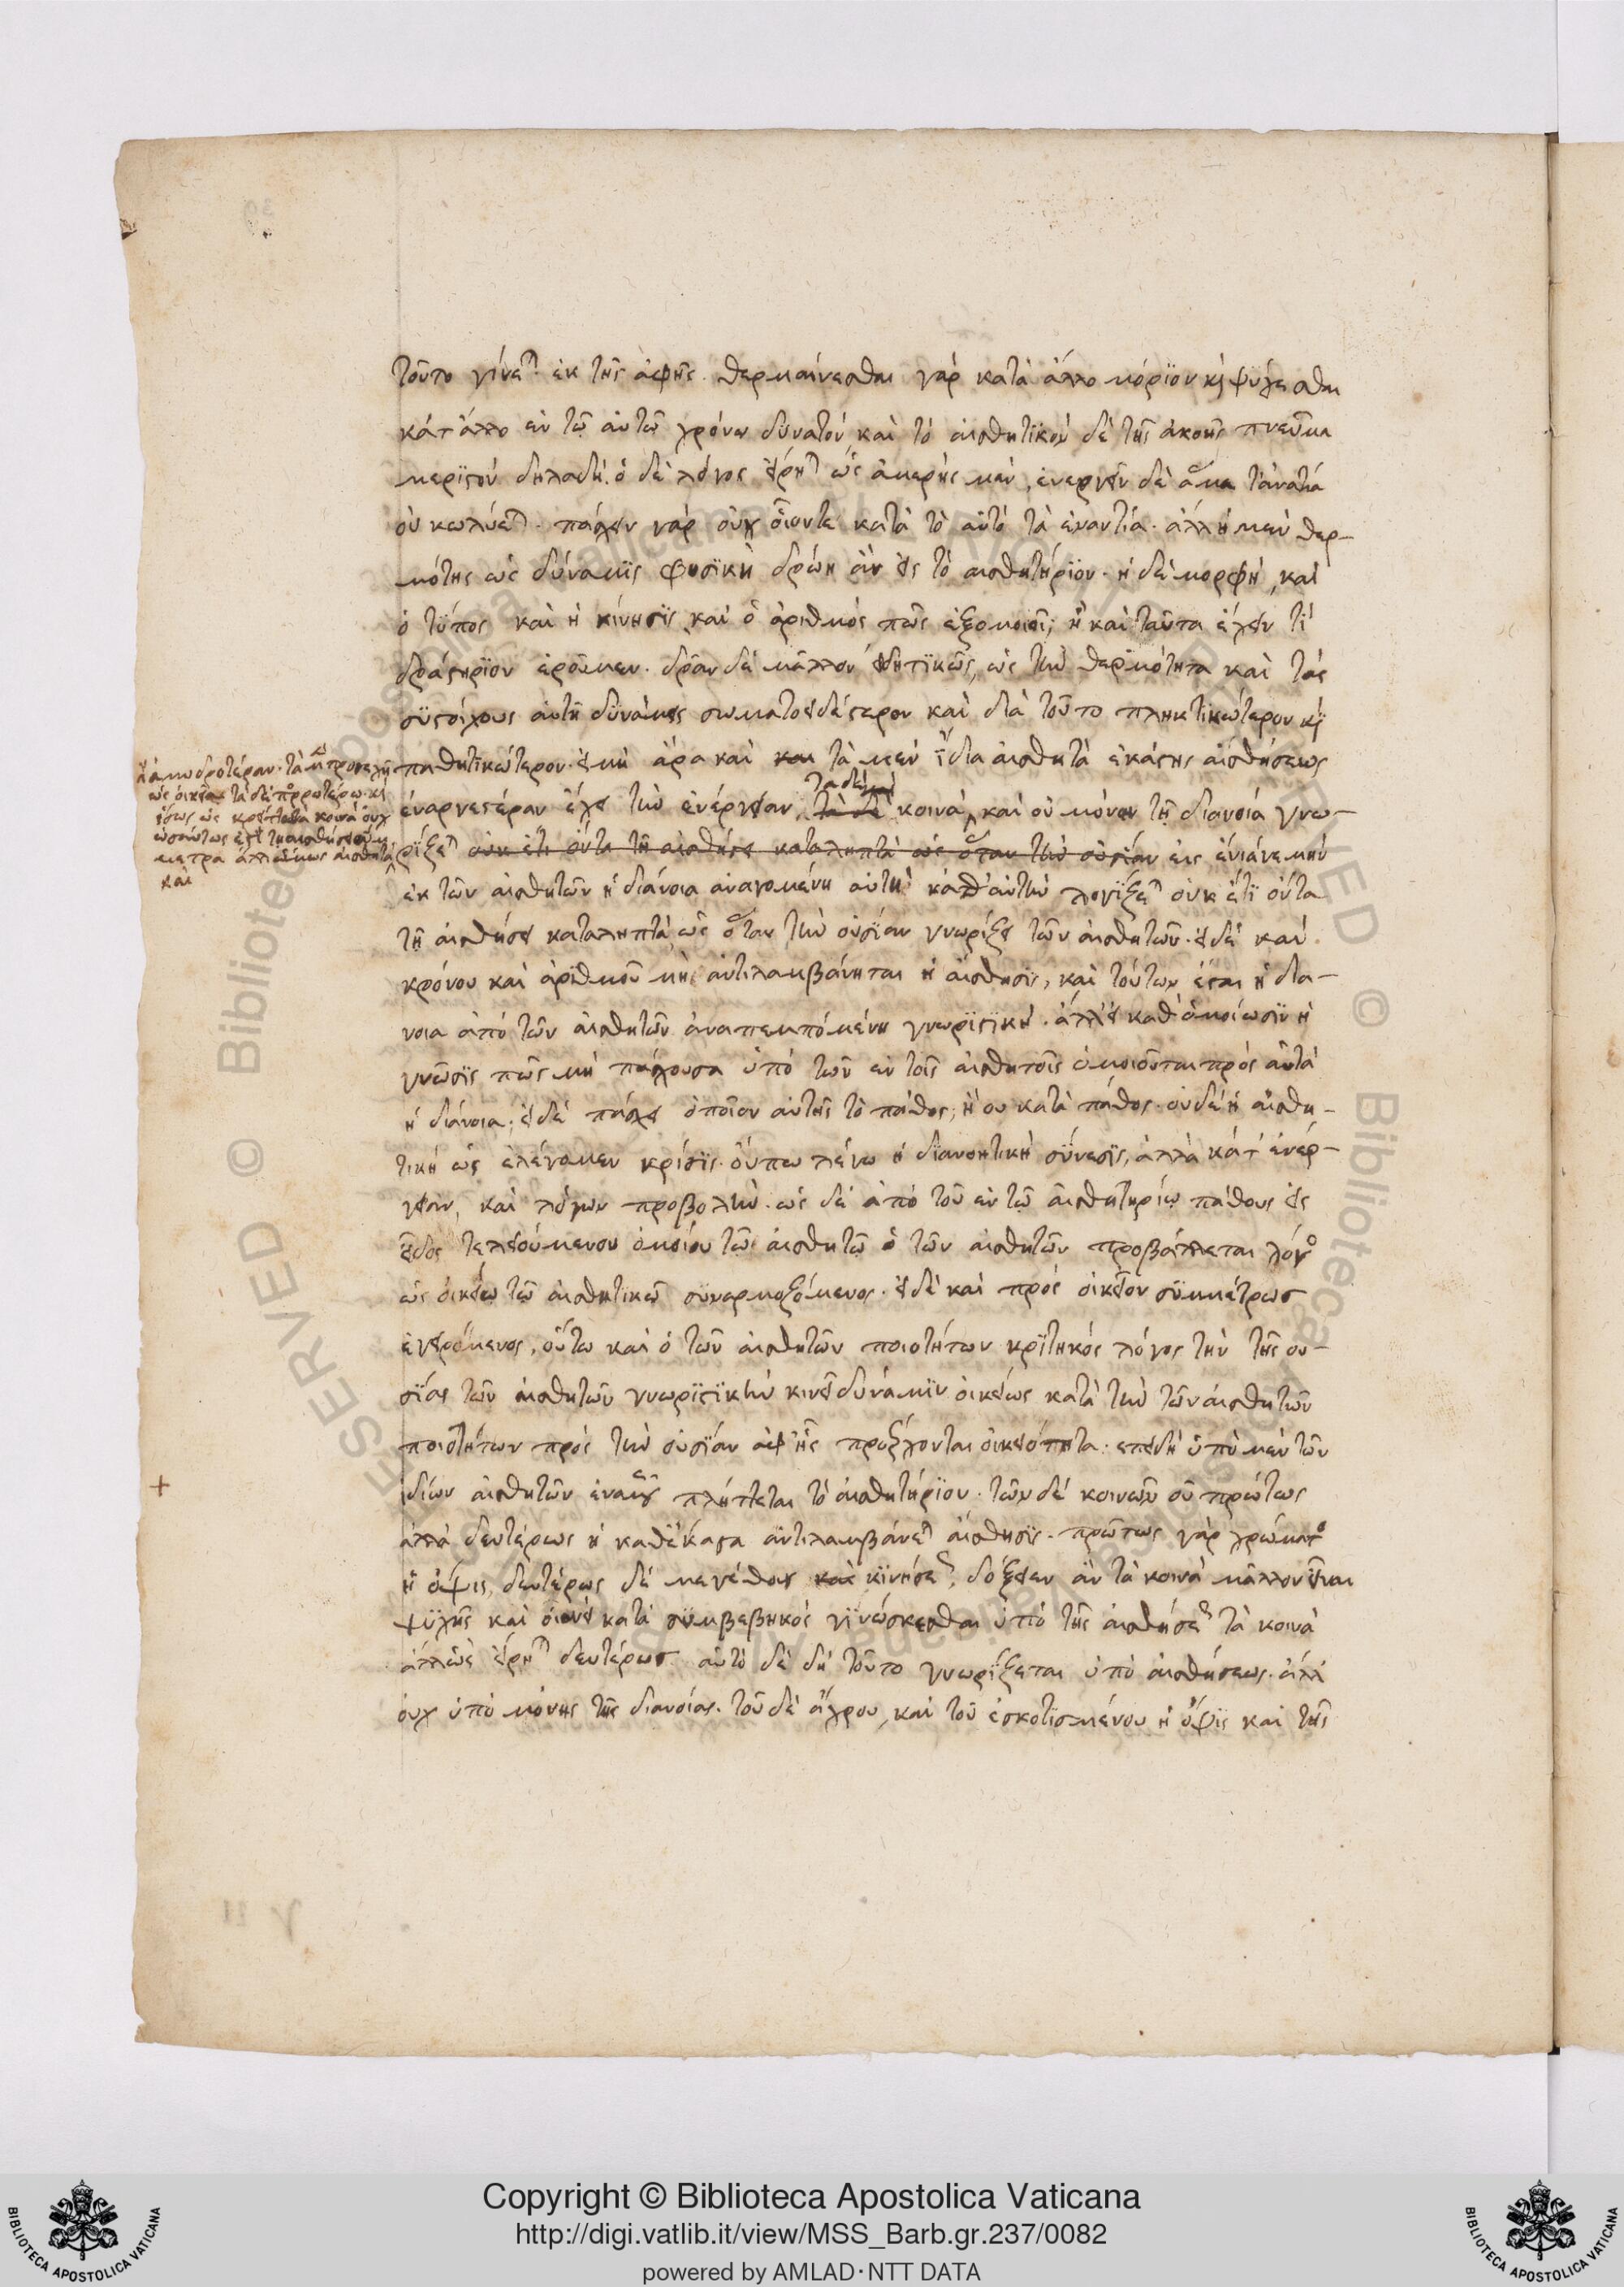 τοῦτο γίνετ ἐκ τῆς ἀφῆς. θερμαίνεσθαι γάρ κατὰ ἄλλο μόρϊον κ ψύχεσθαι
κάτἄλλο ἐν τῷ ἀυτῷ χρόνω δυνατόν καὶ τὸ αἰσθητϊκόν δὲ τῆς ἀκοῆς πνεῦμα
μερϊςόν δηλαδή. ὁ δὲ λόγος ἐίρητ ὡς ἀμερής μεν, ἐνεργεῖν δὲ ἅμα τἀναντία
οὐ κωλύετ. πάσχειν γάρ οὐχ οἷοντε κατὰ τὸ αὐτὸ τὰ ἐναντία. ἀλλ ἡ μὲν θερ-
μότης ὡς δύναμϊς φυσϊκὴ δρώη ἂν εἰς τὸ αισθητήρϊον. ἡ δὲ μορφὴ, καὶ
ὁ τύπος καὶ ἡ κίνησϊς καὶ ὁ ἀριθμός πῶς ἐξομοιοῖ; ἢ καὶ ταῦτα ἔχειν τὶ
δράςηρϊον ἐροῦμεν. δρᾶν δὲ μᾶλλον εἰδητϊκῶς, ὡς τὴν θερμότητα καὶ τὰς
συςοίχους αὐτῇ δυνάμεις σωματοειδέςερον καὶ διὰ τοῦτο πληκτϊκώτερον κ
παθητϊκώτερον. εἰ μὴ ἄρα καὶ και τὰ μὲν ἴδια αἰσθητὰ ἑκάςης αἰσθήσεως
ἐναργεςέραν ἔχει τὴν ἐνέργειαν, τὰ δὲ κοινὰ, καὶ οὐ μόνον τῇ διανοία γνω-
ρίζετ οὐκ ἔτι ὄντα τῇ αἰσθήσει καταληπτὰ ὡς ὅταν τὴν οὐσίαν εἰς ἐνίαν εμήν
ἐκ τῶν αἰσθητῶν ἡ διάνοια ἀναγομένη αὐτὴ κάθ αὑτὴν λογίζετ οὐκ ἔτϊ ὄντα
τῇ αἰσθήσει καταληπτὰ, ὡς ὅταν τὴν οὐσϊαν γνωρίζει τῶν αἰσθητῶν. εἰ δὲ καὶ
χρόνου καὶ ἀρϊθμοῦ μὴ ἀντιλαμβάνηται ἡ αἴσθησϊς, καὶ τούτων ἔςαι ἡ διά-
νοια ἀπὸ τῶν αἰσθητῶν ἀναπεμπομένη γνωρϊςϊκή. ἀλλ εἰ καθ ὁμοίωσϊν ἡ
γνῶσϊς πῶς μὴ πάσχουσα ὑπὸ τῶν ἐν τοῖς αἰσθητοῖς ὁμοιοῦται πρὸς αὐτὰ
ἡ διάνοια; εἰ δὲ πάσχει ὁποῖον αὐτῆς τὸ πάθος; ἢ οὐ κατὰ πάθος. οὐδὲ ἡ αἰσθη-
τικὴ ὡς ἐλέγομεν κρίσϊς. οὔπω λέγω ἡ διανοητϊκὴ σύνεσϊς, ἀλλὰ κάτ ἐνέρ-
γειαν, καὶ λόγων προβολὴν. ὡς δὲ ἀπὸ τοῦ ἐν τῷ αἰσθητηρίῳ πάθους εἰς
εἶδος τελειούμενου ὁμοίου τῷ αἰσθητῷ ὁ τῶν αἰσθητῶν προβάλλεται λόγο
ὡς οἰκείω τῷ αἰσθητικῷ συναρμοζόμενος. εἰ δὲ καὶ πρὸς οἰκεῖον συμμέτρως
ἐγειρόμενος, οὕτω καὶ ὁ τῶν αἰσθητῶν ποιοτήτων κρϊτηκός λόγος τὴν τῆς οὐ-
σϊας τῶν αἰσθητῶν γνωρϊςϊκὴν κινεῖ δύναμϊν οἰκείως κατὰ τὴν τῶν αἰσθητῶν
ποιοτήτων πρὸς τὴν οὐσϊαν ἀφ ἧς προέρχονται οἰκειότητα. ἐπειδὴ ὑπὸ μὲν τῶν
ἰδίων αἰσθητῶν πλήττεται τὸ αἰσθητήρϊον. τῶν δὲ κοινῶν οὐ πρώτως
ἀλλὰ δευτέρως ἡ καθέκαςα ἀντιλαμβάνετ αἴσθησϊς. πρώτως γὰρ χρώματο
ἡ ὄψις, δευτέρως δὲ μεγέθους καὶ κϊνήσε, δόξειεν ἂν τὰ κοινὰ μᾶλλον εἶναι
ψυχῆς καὶ οἱονεὶ κατὰ συμβεβηκός γϊνώσκεσθαι ὑπὸ τῆς αἰσθήσε τὰ κοινὰ
ἀλλ ὡς εἴρητ δευτέρως αὐτὸ δὲ δὴ τοῦτο γνωρϊζεται ὑπὸ αἰσθήσεως. ἀλλ
οὐχ ὑπὸ μόνης τῆς διανοίας. τοῦ δὲ ἄχρου, καὶ τοῦ ἐσκοτϊσμένου ἡ ὄψϊς καὶ τῆς
Copyright © Biblioteca Apostolica Vaticana
http://digi.vatlib.it/view/MSS_Barb.gr.237/0082
powered by AMLAD·NTT DATA
BIBLIOTECA APOSTOLICA VATICANA
BIBLIOTECA APOSTOLICA VATICANA